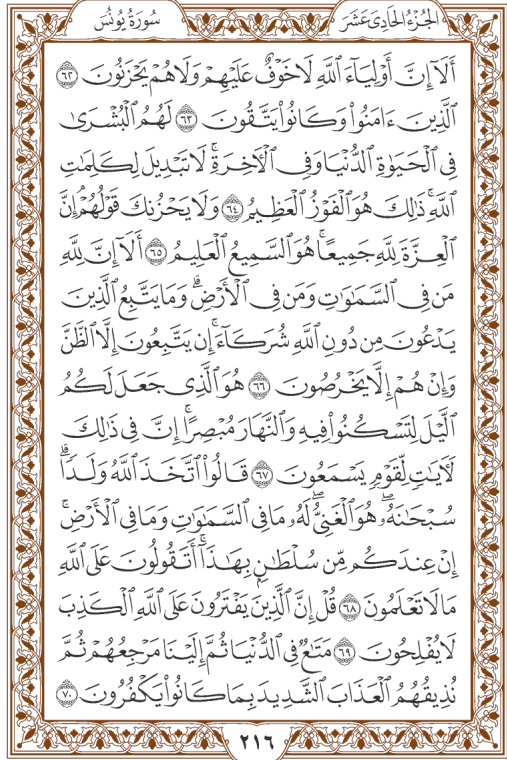 سُورَةُ يُونُسَ
الجُزْءُ الحَادِي عَشَرَ
أَلَآ إِنَّ أَوْلِيَآءَ ٱللَّهِ لَا خَوْفٌ عَلَيْهِمْ وَلَا هُمْ يَحْزَنُونَ ٦٢
ٱلَّذِينَ ءَامَنُوا۟ وَكَانُوا۟ يَتَّقُونَ ٦٣ لَهُمُ ٱلْبُشْرَىٰ
فِى ٱلْحَيَوٰةِ ٱلدُّنْيَا وَفِى ٱلْـَٔاخِرَةِ ۚ لَا تَبْدِيلَ لِكَلِمَٰتِ
ٱللَّهِ ۚ ذَٰلِكَ هُوَ ٱلْفَوْزُ ٱلْعَظِيمُ ٦٤ وَلَا يَحْزُنكَ قَوْلُهُمْ ۘ إِنَّ
ٱلْعِزَّةَ لِلَّهِ جَمِيعًا ۚ هُوَ ٱلسَّمِيعُ ٱلْعَلِيمُ ٦٥ أَلَآ إِنَّ لِلَّهِ
مَن فِى ٱلسَّمَٰوَٰتِ وَمَن فِى ٱلْأَرْضِ ۗ وَمَا يَتَّبِعُ ٱلَّذِينَ
يَدْعُونَ مِن دُونِ ٱللَّهِ شُرَكَآءَ ۚ إِن يَتَّبِعُونَ إِلَّا ٱلظَّنَّ
وَإِنْ هُمْ إِلَّا يَخْرُصُونَ ٦٦ هُوَ ٱلَّذِى جَعَلَ لَكُمُ
ٱلَّيْلَ لِتَسْكُنُوا۟ فِيهِ وَٱلنَّهَارَ مُبْصِرًا ۚ إِنَّ فِى ذَٰلِكَ
لَـَٔايَٰتٍ لِّقَوْمٍ يَسْمَعُونَ ٦٧ قَالُوا۟ ٱتَّخَذَ ٱللَّهُ وَلَدًا ۗ
سُبْحَٰنَهُۥ ۖ هُوَ ٱلْغَنِىُّ ۖ لَهُۥ مَا فِى ٱلسَّمَٰوَٰتِ وَمَا فِى ٱلْأَرْضِ ۚ
إِنْ عِندَكُم مِّن سُلْطَٰنٍۭ بِهَٰذَآ ۚ أَتَقُولُونَ عَلَى ٱللَّهِ
مَا لَا تَعْلَمُونَ ٦٨ قُلْ إِنَّ ٱلَّذِينَ يَفْتَرُونَ عَلَى ٱللَّهِ ٱلْكَذِبَ
لَا يُفْلِحُونَ ٦٩ مَتَٰعٌ فِى ٱلدُّنْيَا ثُمَّ إِلَيْنَا مَرْجِعُهُمْ ثُمَّ
نُذِيقُهُمُ ٱلْعَذَابَ ٱلشَّدِيدَ بِمَا كَانُوا۟ يَكْفُرُونَ ٧٠
٢١٦